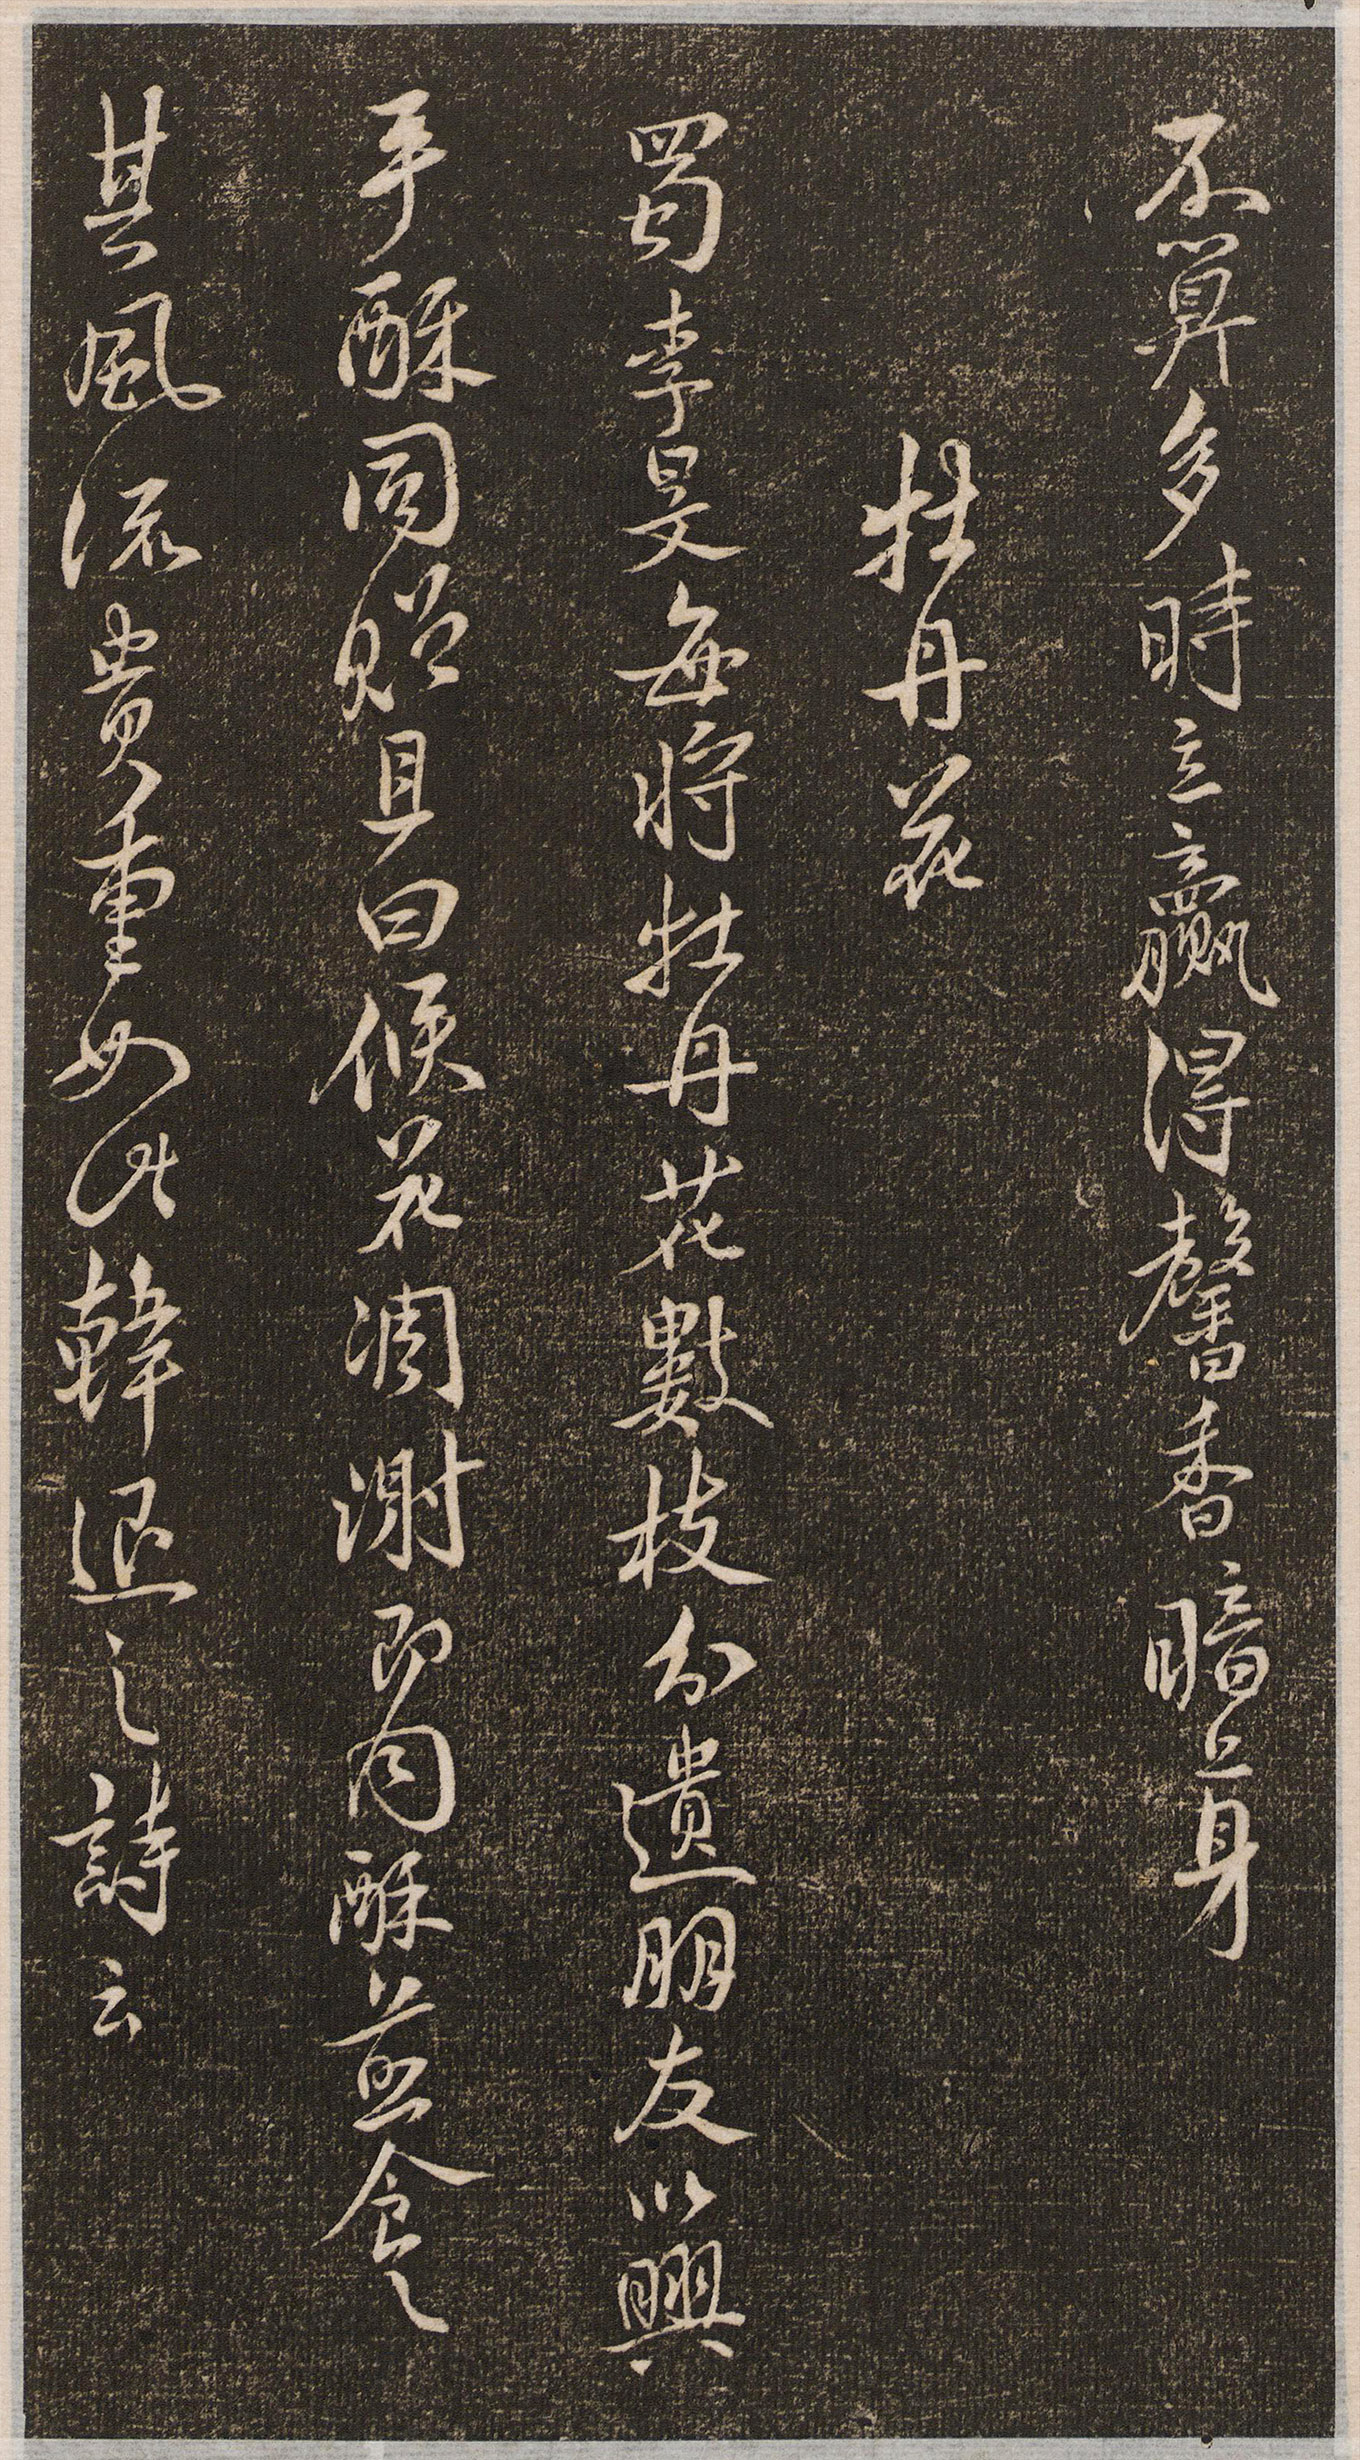 不算多時立贏得馨香暗上身
牡丹花
蜀李昊每將牡丹花數枝分遺朋友以興
平酥同贈且曰候花凋謝即用酥煎食之
其風流貴重如此韓退之詩云